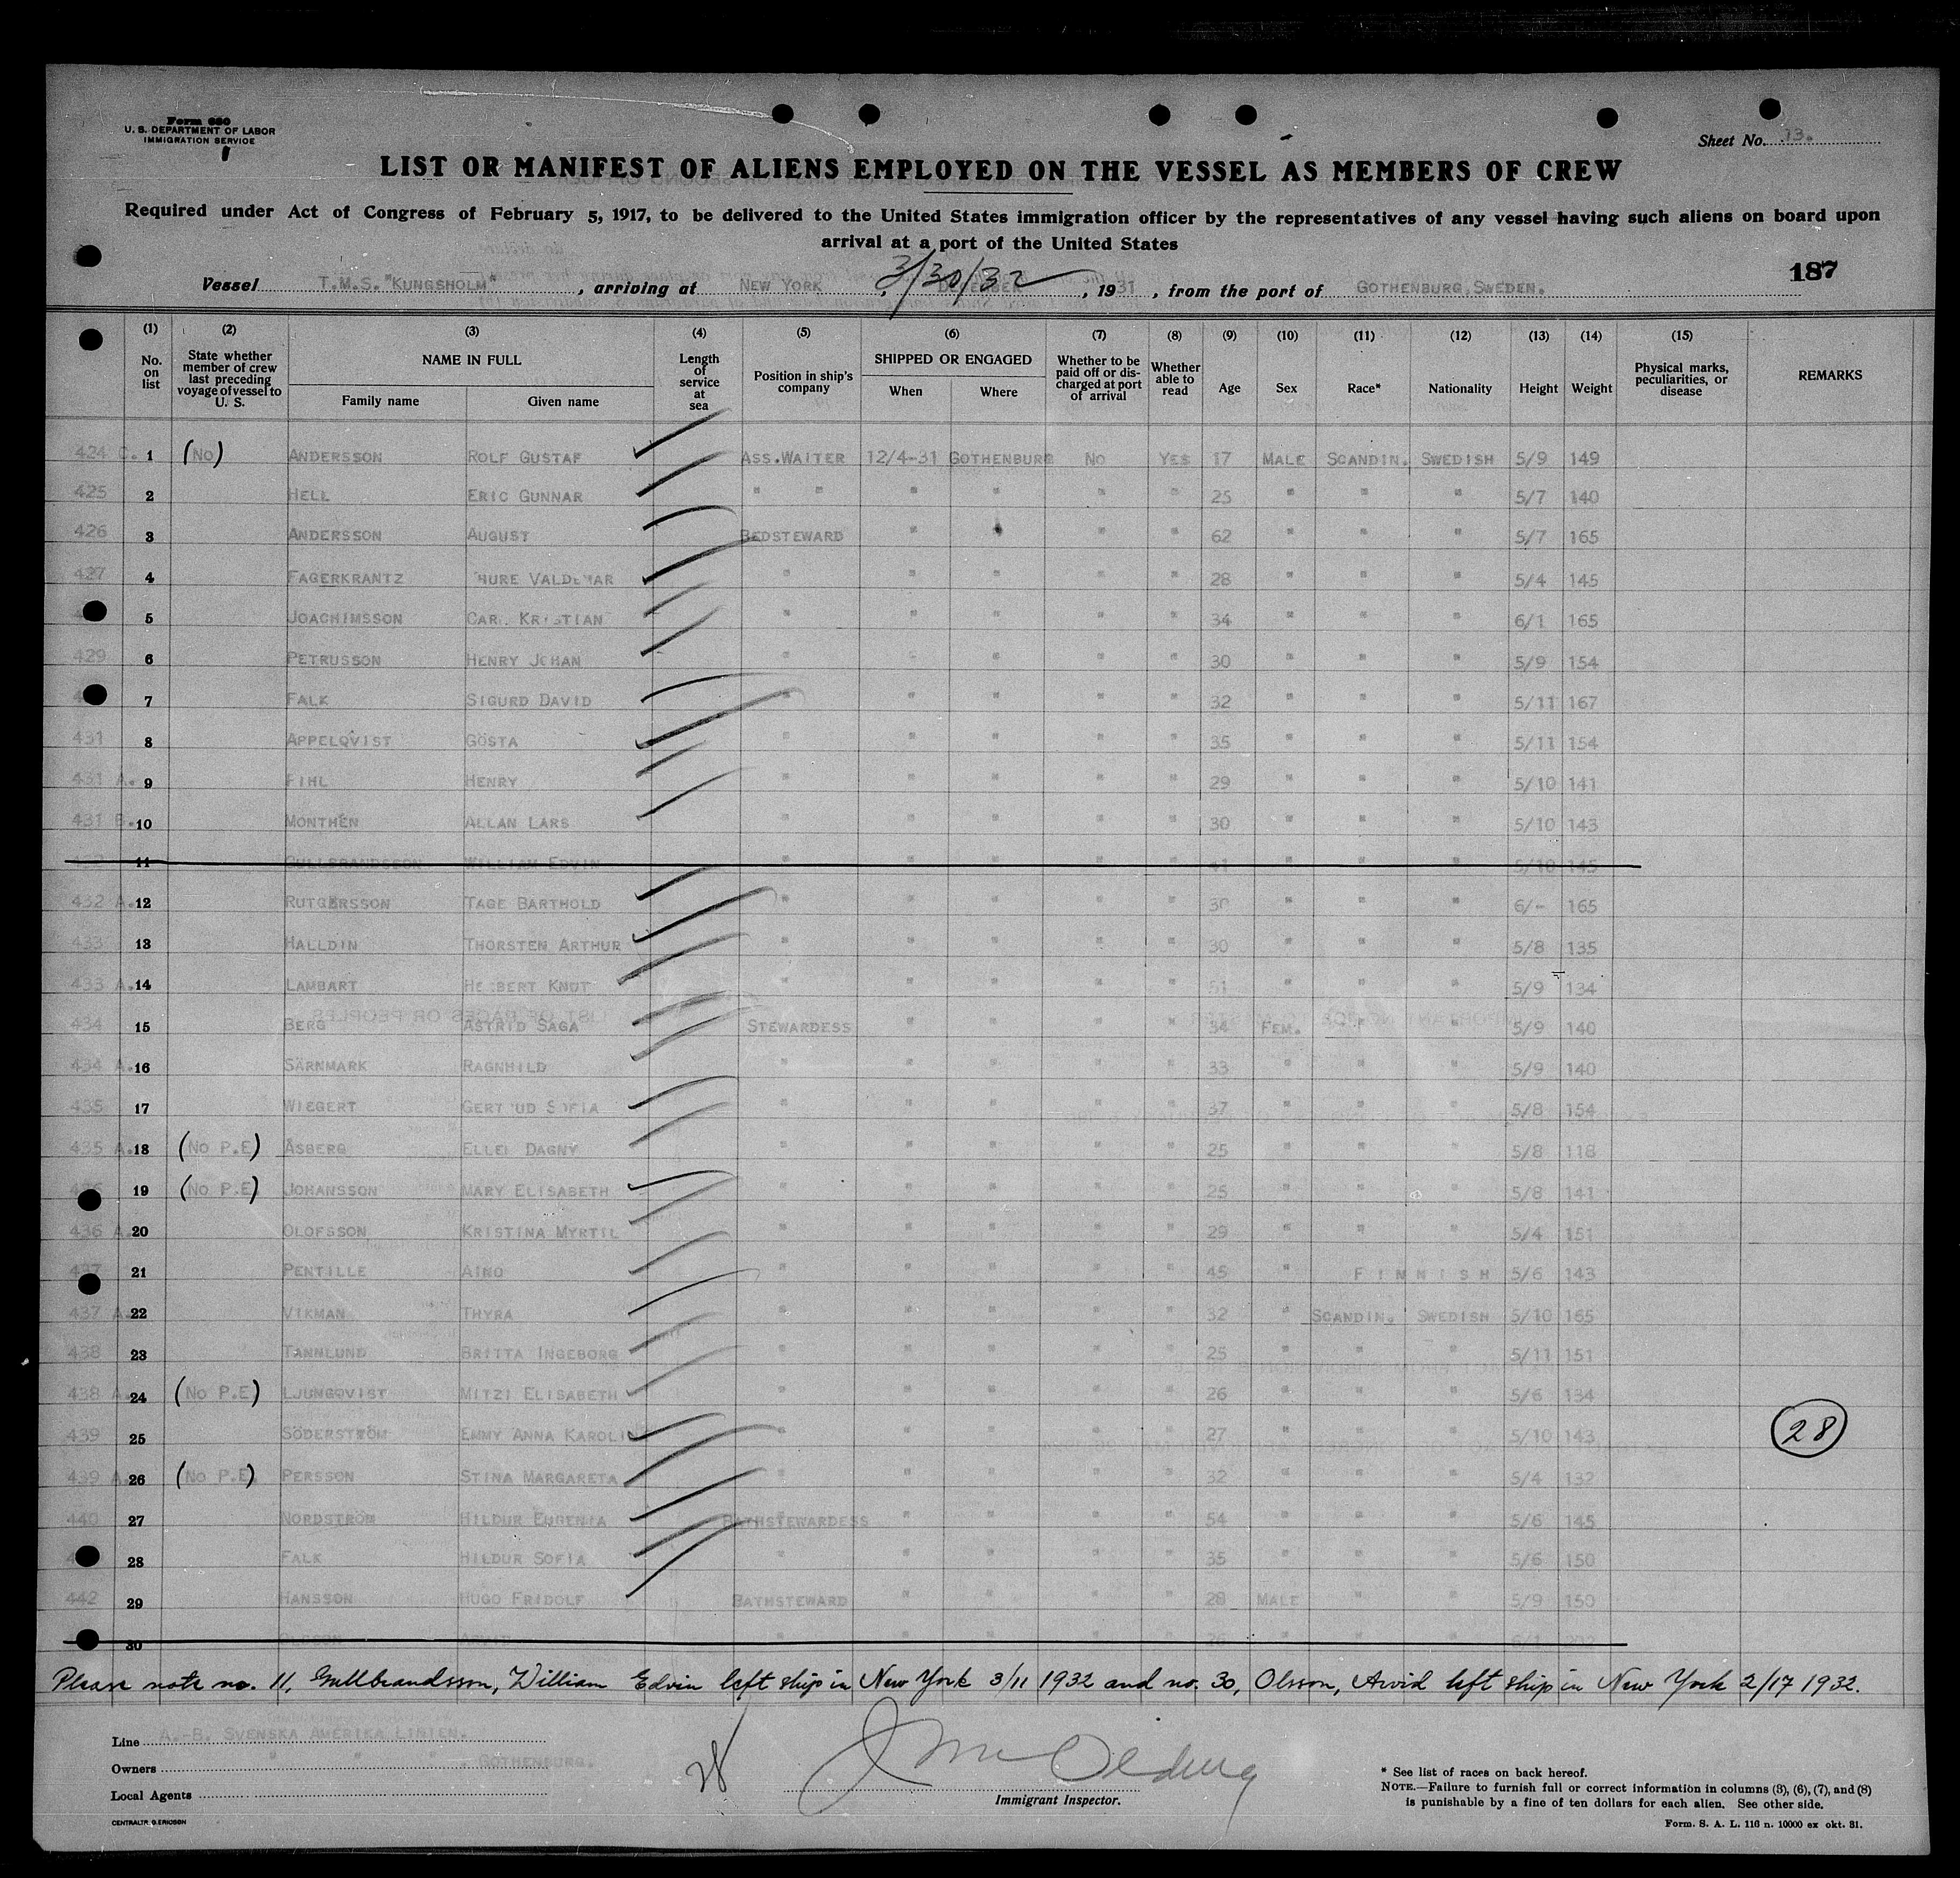 Form 680
U. S. DEPARTMENT OF LABOR
IMMIGRATION SERVICE
Sheet No. 13.
LIST OR MANIFEST OF ALIENS EMPLOYED ON THE VESSEL AS MEMBERS OF CREW
Required under Act of Congress of February 5, 1917, to be delivered to the United States immigration officer by the representatives of any vessel having such aliens on board upon
arrival at a port of the United States
187
Vessel T.M.S."KUNGSHOLM", arriving at NEW YORK, 3/30/32 DECEMBER, 1931, from the port of GOTHENBURG,SWEDEN.
(1) No. on list (2) State whether member of crew last preceding voyage of vessel to U. S. (3) NAME IN FULL Family name Given name (4) Length of service at sea (5) Position in ship's company (6) SHIPPED OR ENGAGED When Where (7) Whether to be paid off or discharged at port of arrival (8) Whether able to read (9) Age (10) Sex (11) Race* (12) Nationality (13) Height (14) Weight (15) Physical marks, peculiarities, or disease REMARKS
424 C. 1 (No) ANDERSSON ROLF GUSTAF ASS.WAITER 12/4-31 GOTHENBURG NO YES 17 MALE SCANDIN. SWEDISH 5/9 149
425 2 HELL ERIC GUNNAR " " " " " " 25 " " " 5/7 140
426 3 ANDERSSON AUGUST BEDSTEWARD " " " " 62 " " " 5/7 165
427 4 FAGERKRANTZ VALDEMAR " " " " " 28 " " " 5/4 145
5 JOACHIMSSON CARL KRISTIAN " " " " " 34 " " " 6/1 165
429 6 PETRUSSON HENRY JOHAN " " " " " 30 " " " 5/9 154
7 FALK SIGURD DAVID " " " " " 32 " " " 5/11 167
431 8 APPELQVIST GÖSTA " " " " " 35 " " " 5/11 154
431 A. 9 FIHL HENRY " " " " " 29 " " " 5/10 141
431 B. 10 MONTHÉN ALLAN LARS " " " " " 30 " " " 5/10 143
11 GULLBRANDSSON WILLIAM EDVIN " " " " " 41 " " " 5/10 145
432 A. 12 RUTGERSSON TAGE BARTHOLD " " " " " 30 " " " 6/- 165
433 13 HALLDIN THORSTEN ARTHUR " " " " " 30 " " " 5/8 135
433 A. 14 LAMBART HERBERT KNUT " " " " " " " " 5/9 134
434 15 BERG ASTRID SAGA STEWARDESS " " " " 34 FEM. " " 5/9 140
434 A. 16 SÄRNMARK RAGNHILD " " " " " 33 " " " 5/9 140
435 17 WIEGERT GERTRUD SOFIA " " " " " 37 " " " 5/8 154
435 A. 18 (No P.E) ÅSBERG ELLEN DAGNY " " " " " 25 " " " 5/8 118
19 (No P.E) JOHANSSON MARY ELISABETH " " " " " 25 " " " 5/8 141
436 A. 20 OLOFSSON KRISTINA MYRTIL " " " " " 29 " " " 5/4 151
437 21 PENTILLE AINO " " " " " 45 " FINNISH 5/6 143
437 A. 22 VIKMAN THYRA " " " " " 32 " SCANDIN. SWEDISH 5/10 165
438 23 TANNLUND BRITTA INGEBORG " " " " " 25 " " " 5/11 151
438 A. 24 (No P.E) LJUNGQVIST MITZI ELISABETH " " " " " 26 " " " 5/6 134
439 25 SÖDERSTRÖM EMMY ANNA KAROLIN " " " " " 27 " " " 5/10 143
28
439 A. 26 (No P.E) PERSSON STINA MARGARETA " " " " " 32 " " " 5/4 132
440 27 NORDSTRÖM HILDUR EUGENIA BATHSTEWARDESS " " " " 54 " " " 5/6 145
28 FALK HILDUR SOFIA " " " " " 35 " " " 5/6 150
442 29 HANSSON HUGO FRIDOLF BATHSTEWARD " " " " 28 MALE " " 5/9 150
30 OLSSON ARVID " " " " " 26 " " " 6/1 202
Please note no. 11, Gullbrandsson, William Edvin left ship in New York 3/11 1932 and no. 30, Olsson, Arvid left ship in New York 2/17 1932.
Line A.-B. SVENSKA AMERIKA LINIEN.
Owners " " " GOTHENBURG.
Local Agents
28
Immigrant Inspector.
CENTRALTR. G. ERICSON
* See list of races on back hereof.
NOTE.—Failure to furnish full or correct information in columns (3), (6), (7), and (8)
is punishable by a fine of ten dollars for each alien. See other side.
Form. S. A. L. 116 n. 10000 ex okt. 31.